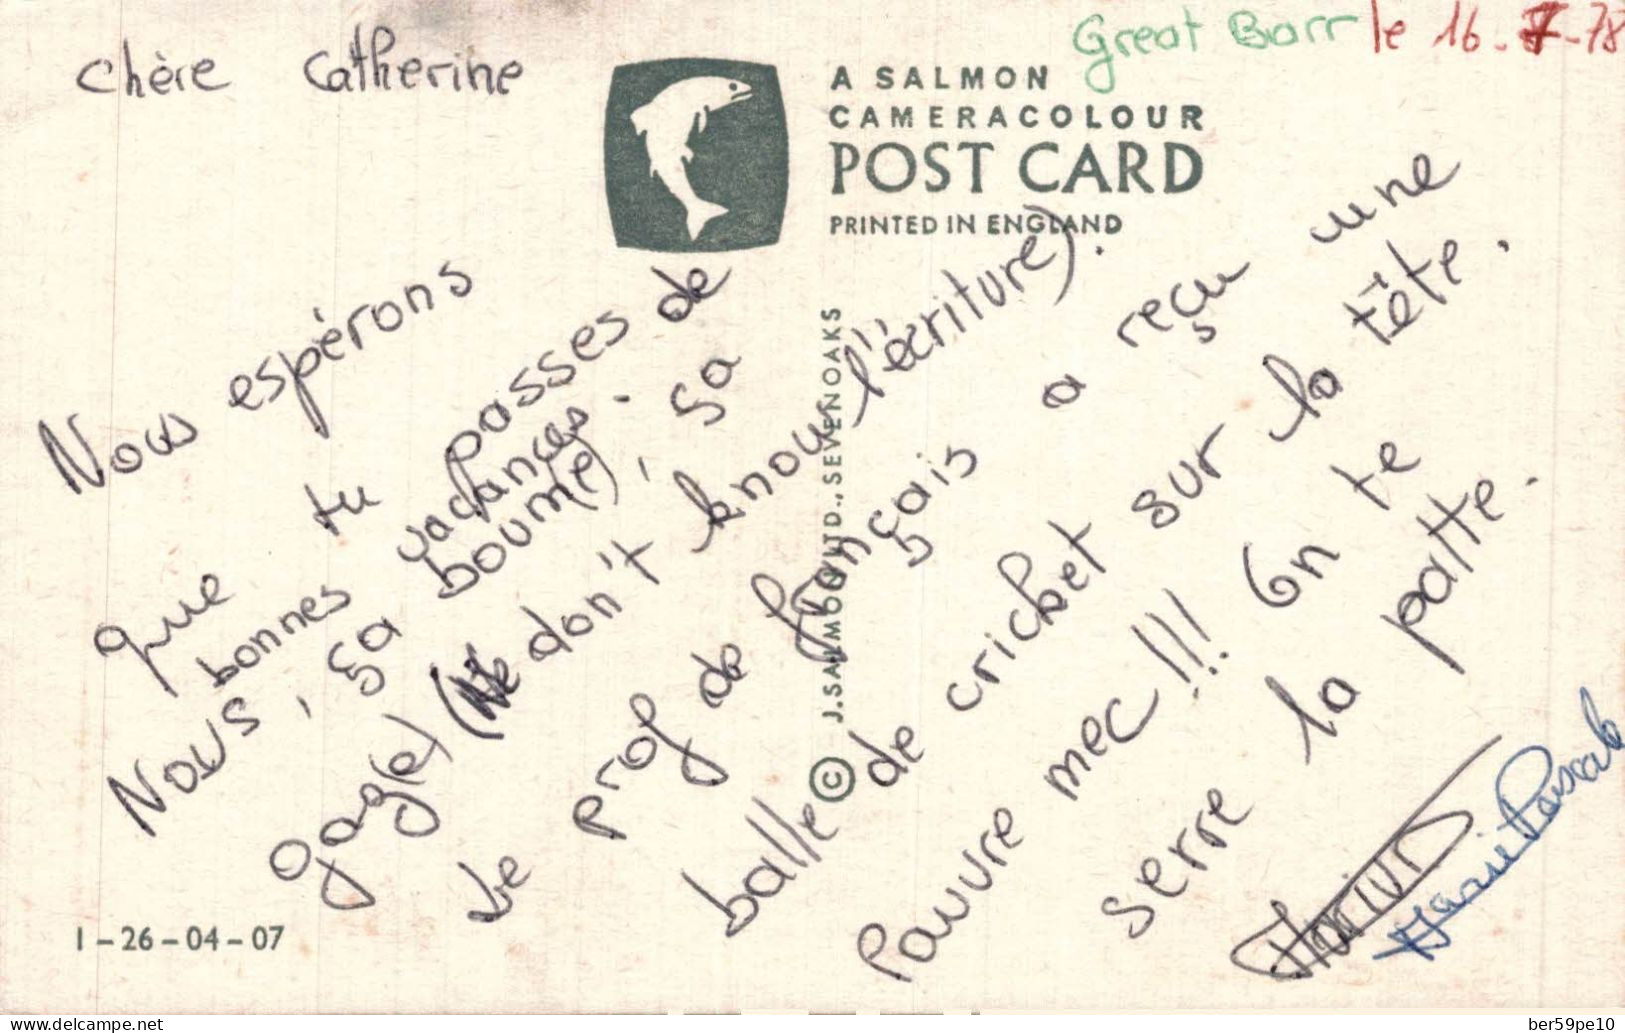 Great Barr le 16-7-78
chère Catherine
A SALMON
CAMERACOLOUR
POST CARD
PRINTED IN ENGLAND
© J.SALMON LTD., SEVENOAKS
Nous espérons
que tu passes de
bonnes vacances.
Nous, ça boum(e), ça
gag(e) (We don't know l'écriture).
Le prof de français a reçu une
balle de cricket sur la tête.
Pauvre mec!!! On te
serre la patte.
Marie Pascale
1-26-04-07
www.delcampe.net
ber59pe10